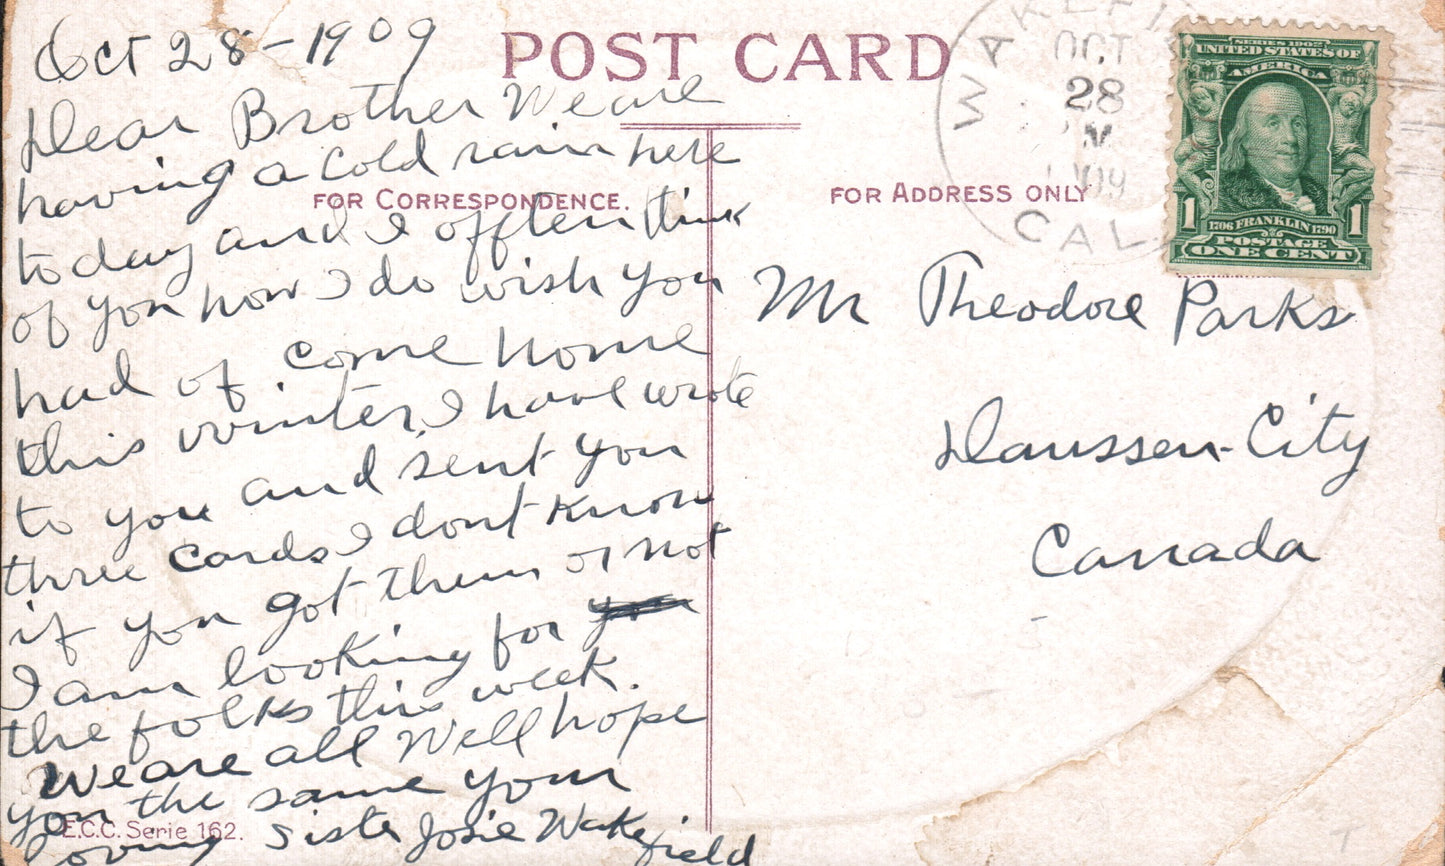 Oct 28-1909
POST CARD
Dear Brother We are
having a cold rain here
FOR CORRESPONDENCE.
today and I offten think
of you how I do wish you
had of come home
this winter, I have wrote
to you and sent you
three cards I dont know
if you got them or not
I am looking for
the folks this week.
We are all Well hope
you the same your
loving Sister Josie Wakefield
E.C.C. Serie 162.
OCT
28
'09
CAL
SERIES 1902
UNITED STATES OF
AMERICA
1 1706 FRANKLIN 1790 1
POSTAGE
ONE CENT
FOR ADDRESS ONLY
Mr Theodore Parks
Daussen-City
Canada